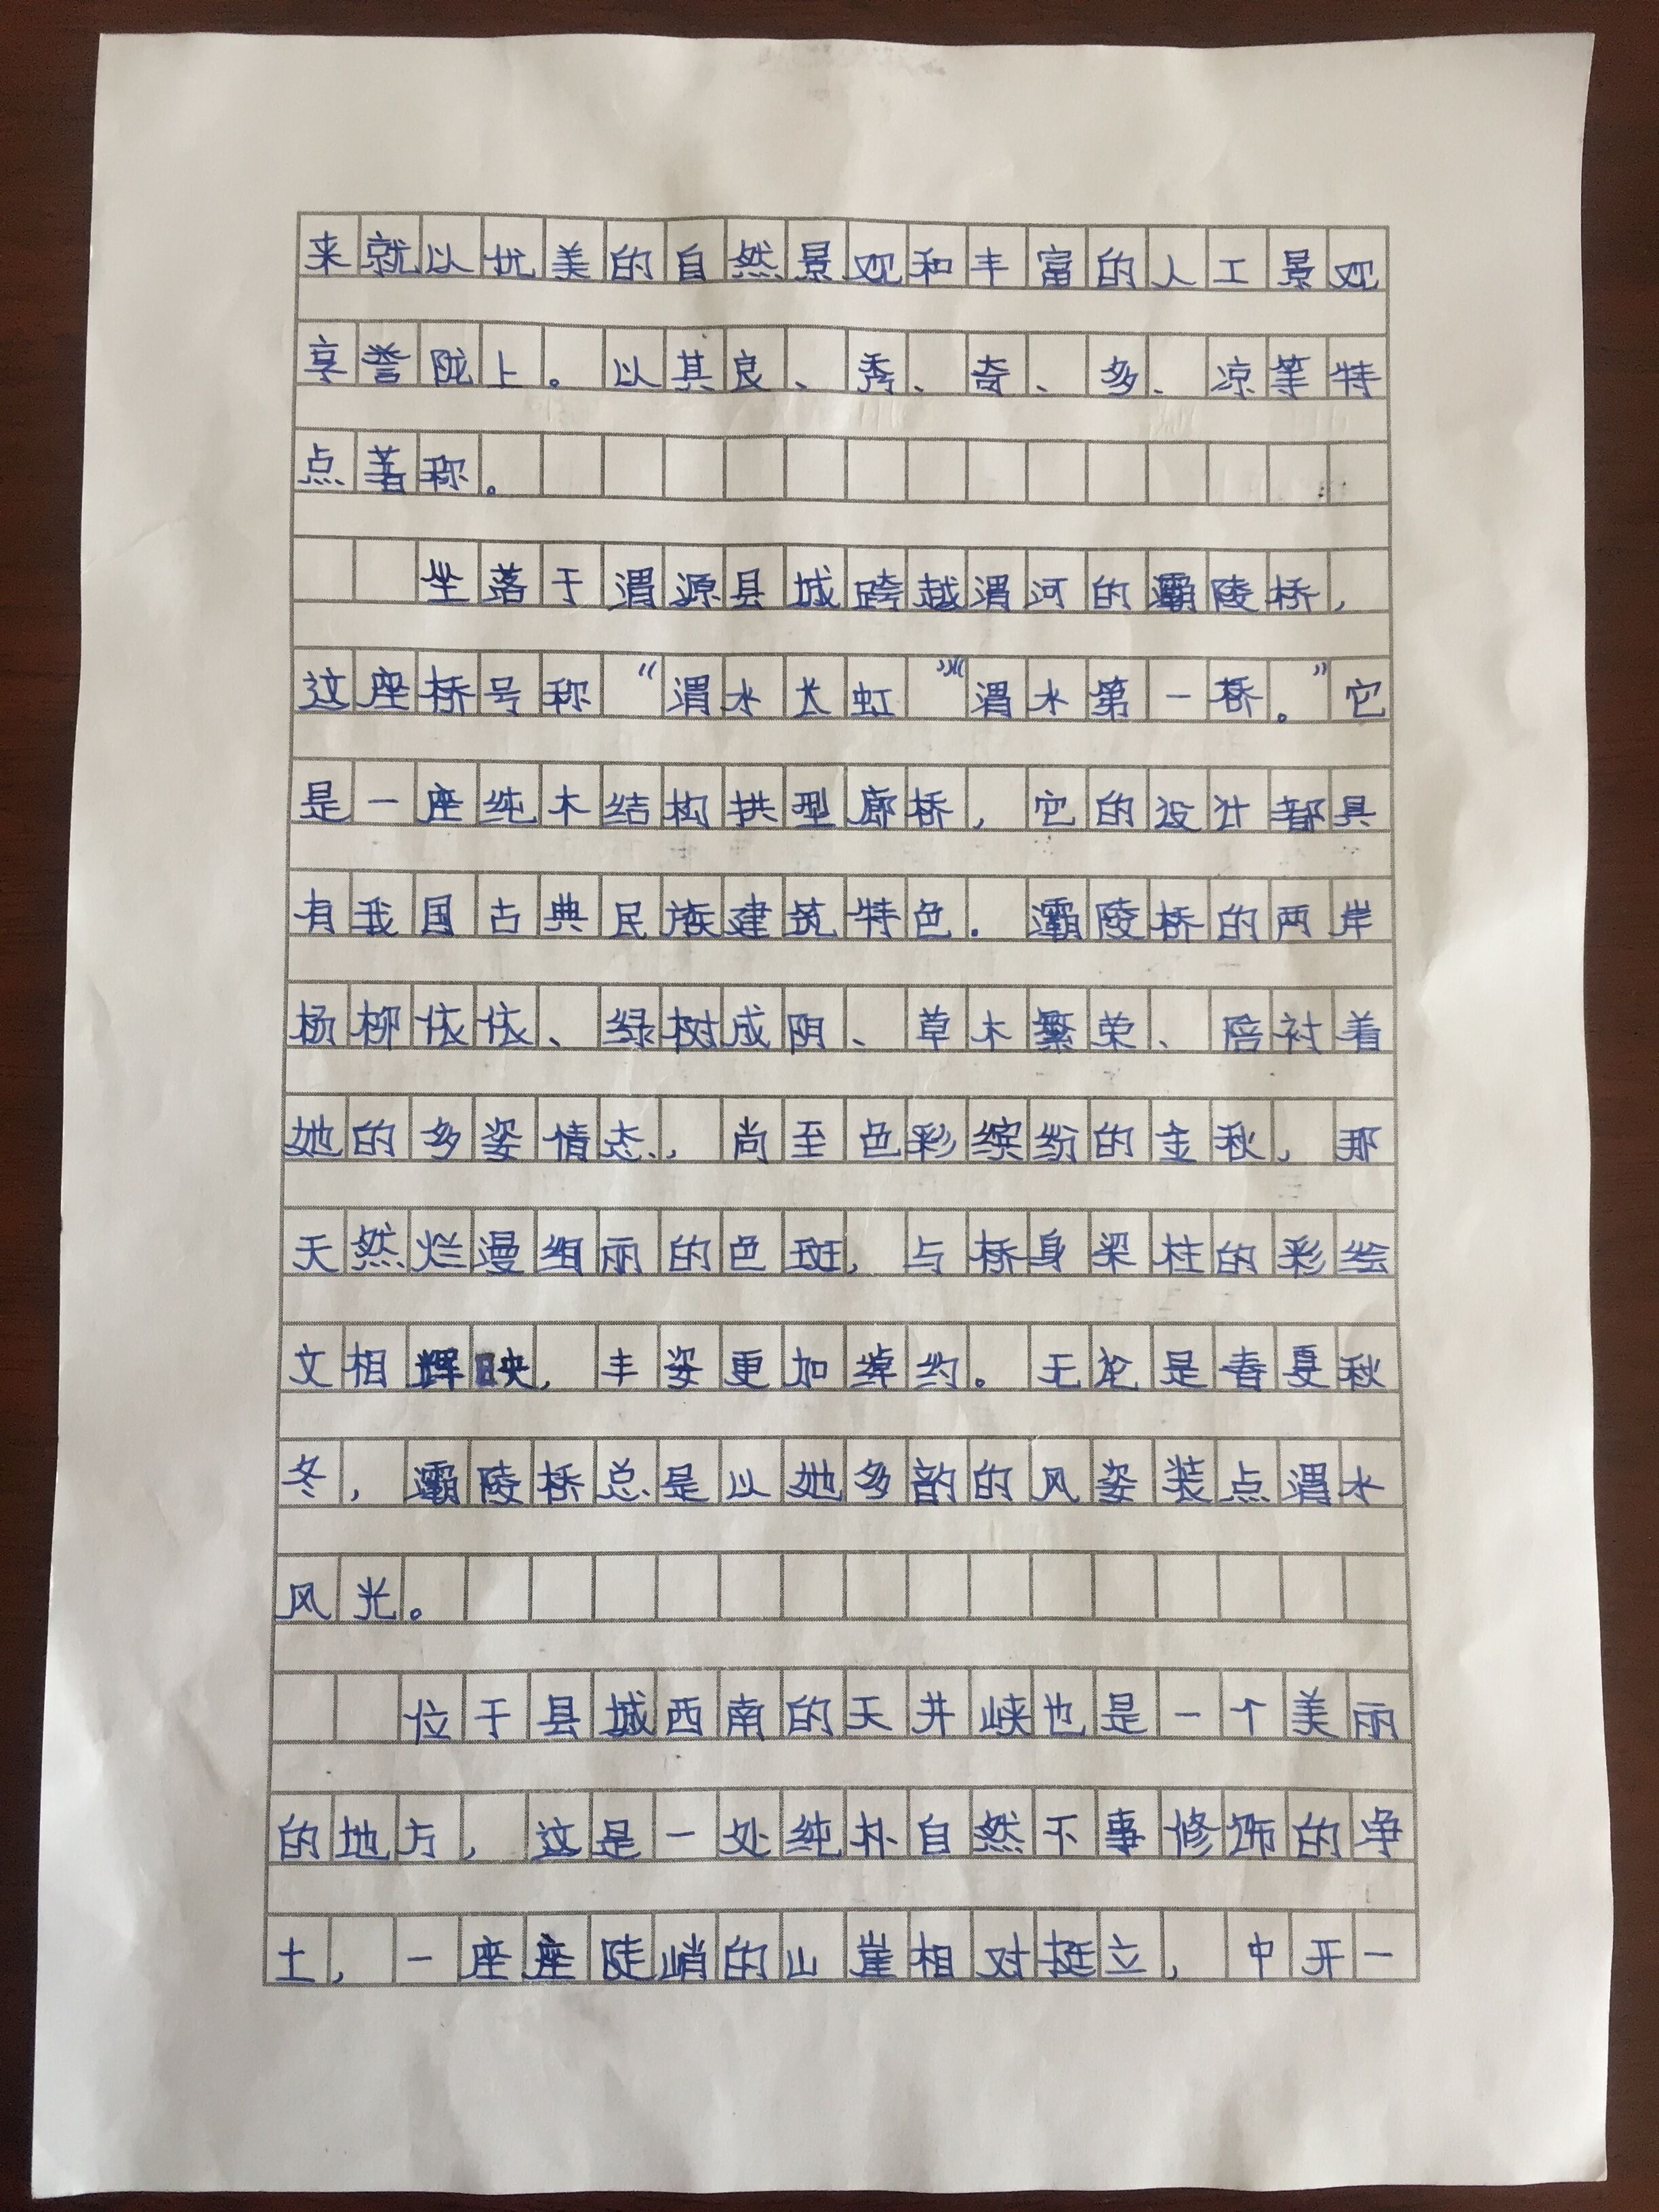 来就以优美的自然景观和丰富的人工景观
享誉陇上。以其良、秀、奇、多、凉等特
点著称。
坐落于渭源县城跨越渭河的灞陵桥，
这座桥号称“渭水长虹”“渭水第一桥。”它
是一座纯木结构拱型廊桥，它的设计都具
有我国古典民族建筑特色．灞陵桥的两岸
杨柳依依、绿树成阴、草木繁荣、陪衬着
她的多姿情态，尚至色彩缤纷的金秋，那
天然烂漫绚丽的色斑，与桥身梁柱的彩绘
文相辉映，丰姿更加绰约。无论是春夏秋
冬，灞陵桥总是以她多韵的风姿装点渭水
风光。
位于县城西南的天井峡也是一个美丽
的地方，这是一处纯朴自然不事修饰的净
土，一座座陡峭的山崖相对挺立，中开一